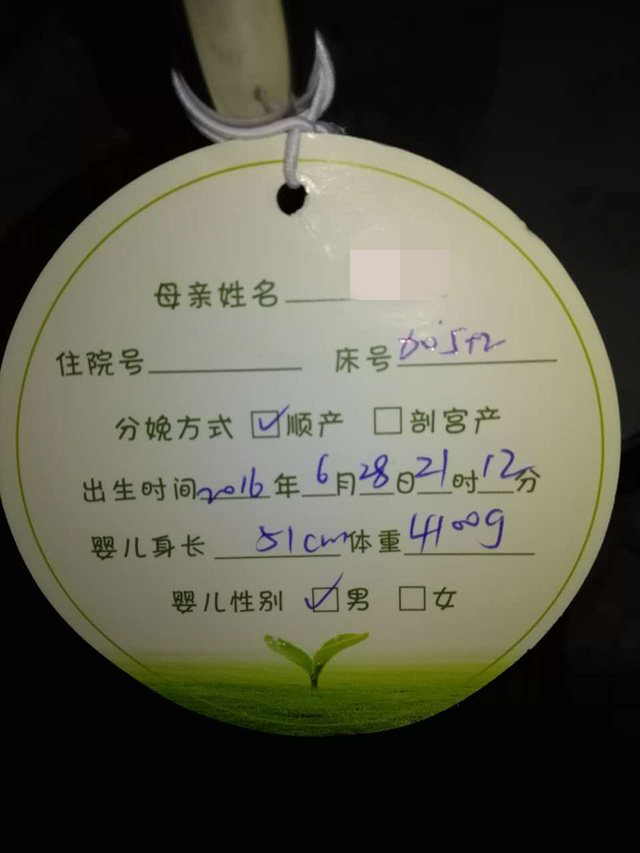 母亲姓名
住院号 床号
分娩方式 顺产 剖宫产
出生时间2016年6月28日21时12分
婴儿身长 51cm 体重4100g
婴儿性别 男 女